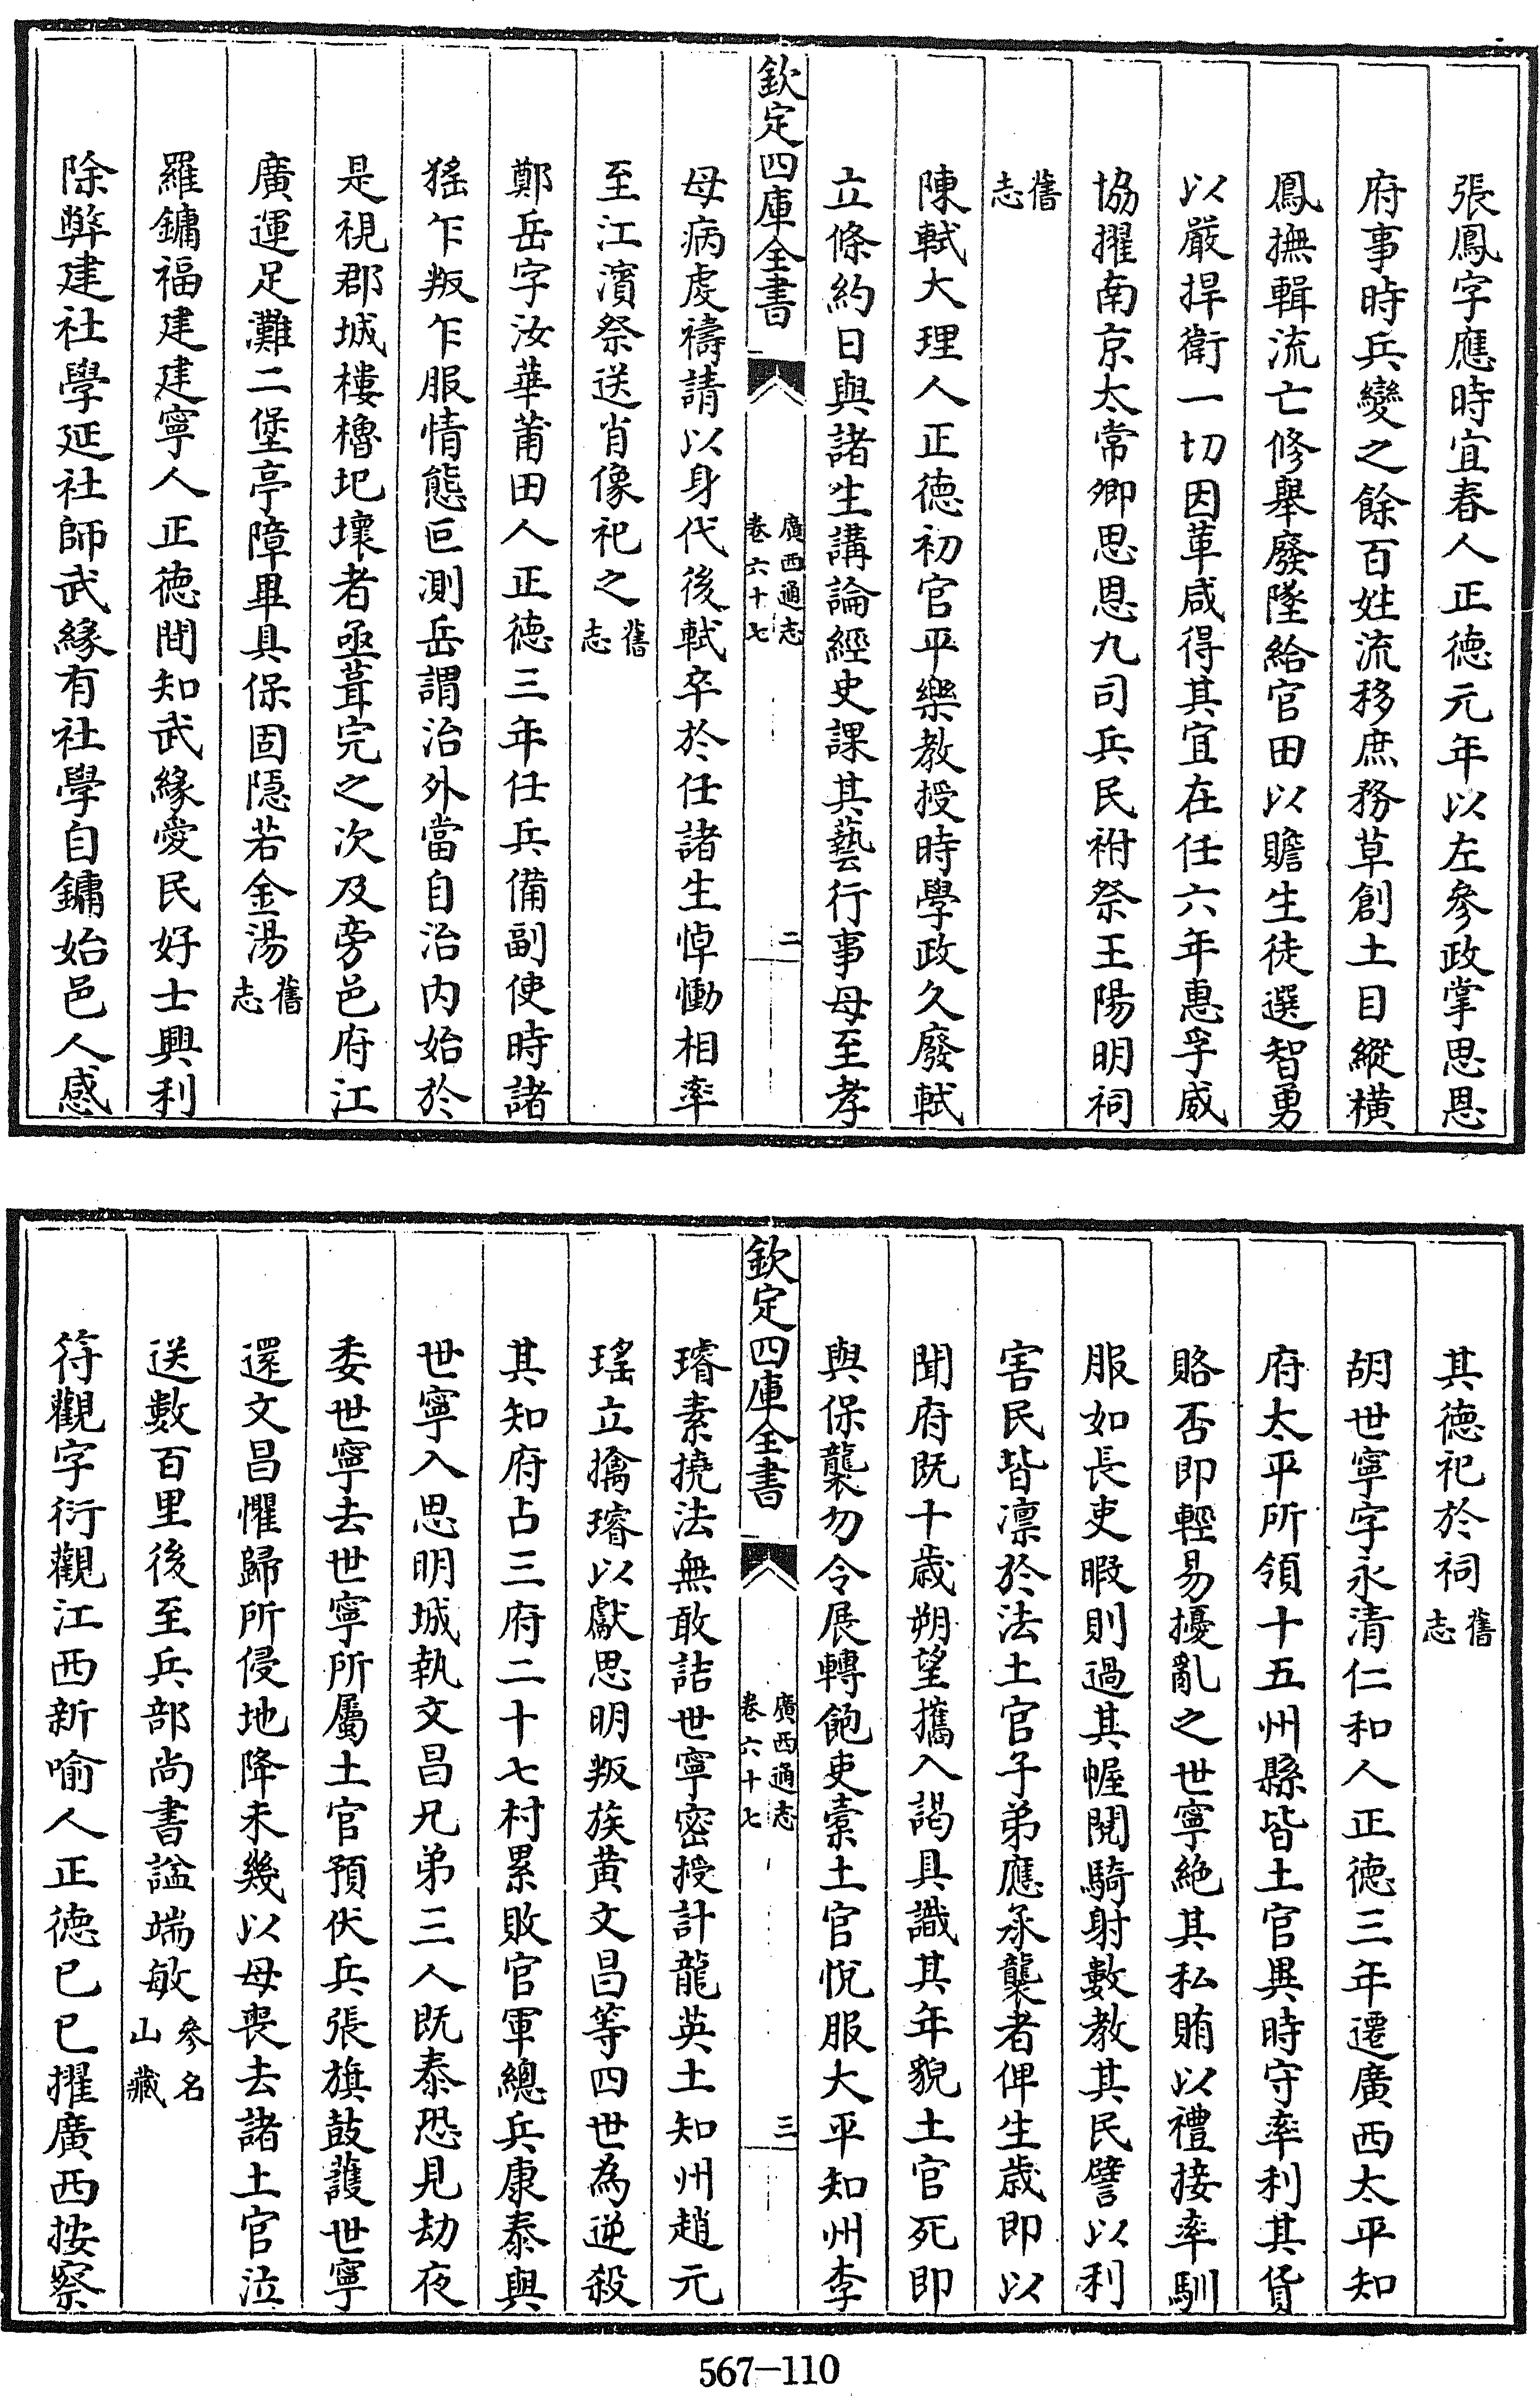 張鳳字應時宜春人正德元年以左參政掌思恩
府事時兵變之餘百姓流移庶務草創土目縱橫
鳳撫輯流亡修舉廢墜給官田以贍生徒選智勇
以嚴捍衛一切因革咸得其宜在任六年惠孚威
協擢南京太常卿思恩九司兵民祔祭王陽明祠
舊志
陳軾大理人正德初官平樂教授時學政久廢軾
立條約日與諸生講論經史課其藝行事母至孝
欽定四庫全書
廣西通志
卷六十七
二
母病虔禱請以身代後軾卒於任諸生悼慟相率
至江濱祭送肖像祀之舊志
鄭岳字汝華莆田人正德三年任兵備副使時諸
猺乍叛乍服情態叵測岳謂治外當自治内始於
是視郡城樓櫓圮壞者亟葺完之次及旁邑府江
廣運足灘二堡亭障畢具保固隱若金湯舊志
羅鏞福建建寧人正德間知武緣愛民好士興利
除弊建社學延社師武緣有社學自鏞始邑人感
其德祀於祠舊志
胡世寧字永清仁和人正德三年遷廣西太平知
府太平所領十五州縣皆土官異時守率利其貨
賂否即輕易擾亂之世寧絶其私賄以禮接率馴
服如長吏暇則過其幄閱騎射數教其民譬以利
害民皆凛於法土官子弟應承襲者俾生歲即以
聞府既十歲朔望攜入謁具識其年貌土官死即
與保襲勿令展轉飽吏橐土官悅服大平知州李
欽定四庫全書
廣西通志
卷六十七
三
璿素撓法無敢詰世寧密授計龍英土知州趙元
瑤立擒璿以獻思明叛族黄文昌等四世為逆殺
其知府占三府二十七村累敗官軍總兵康泰與
世寧入思明城執文昌兄弟三人既泰恐見劫夜
委世寧去世寧所屬土官預伏兵張旗鼓護世寧
還文昌懼歸所侵地降未幾以母喪去諸土官泣
送數百里後至兵部尚書諡端敏參名山藏
符觀字衍觀江西新喻人正德已已擢廣西按察
567-110